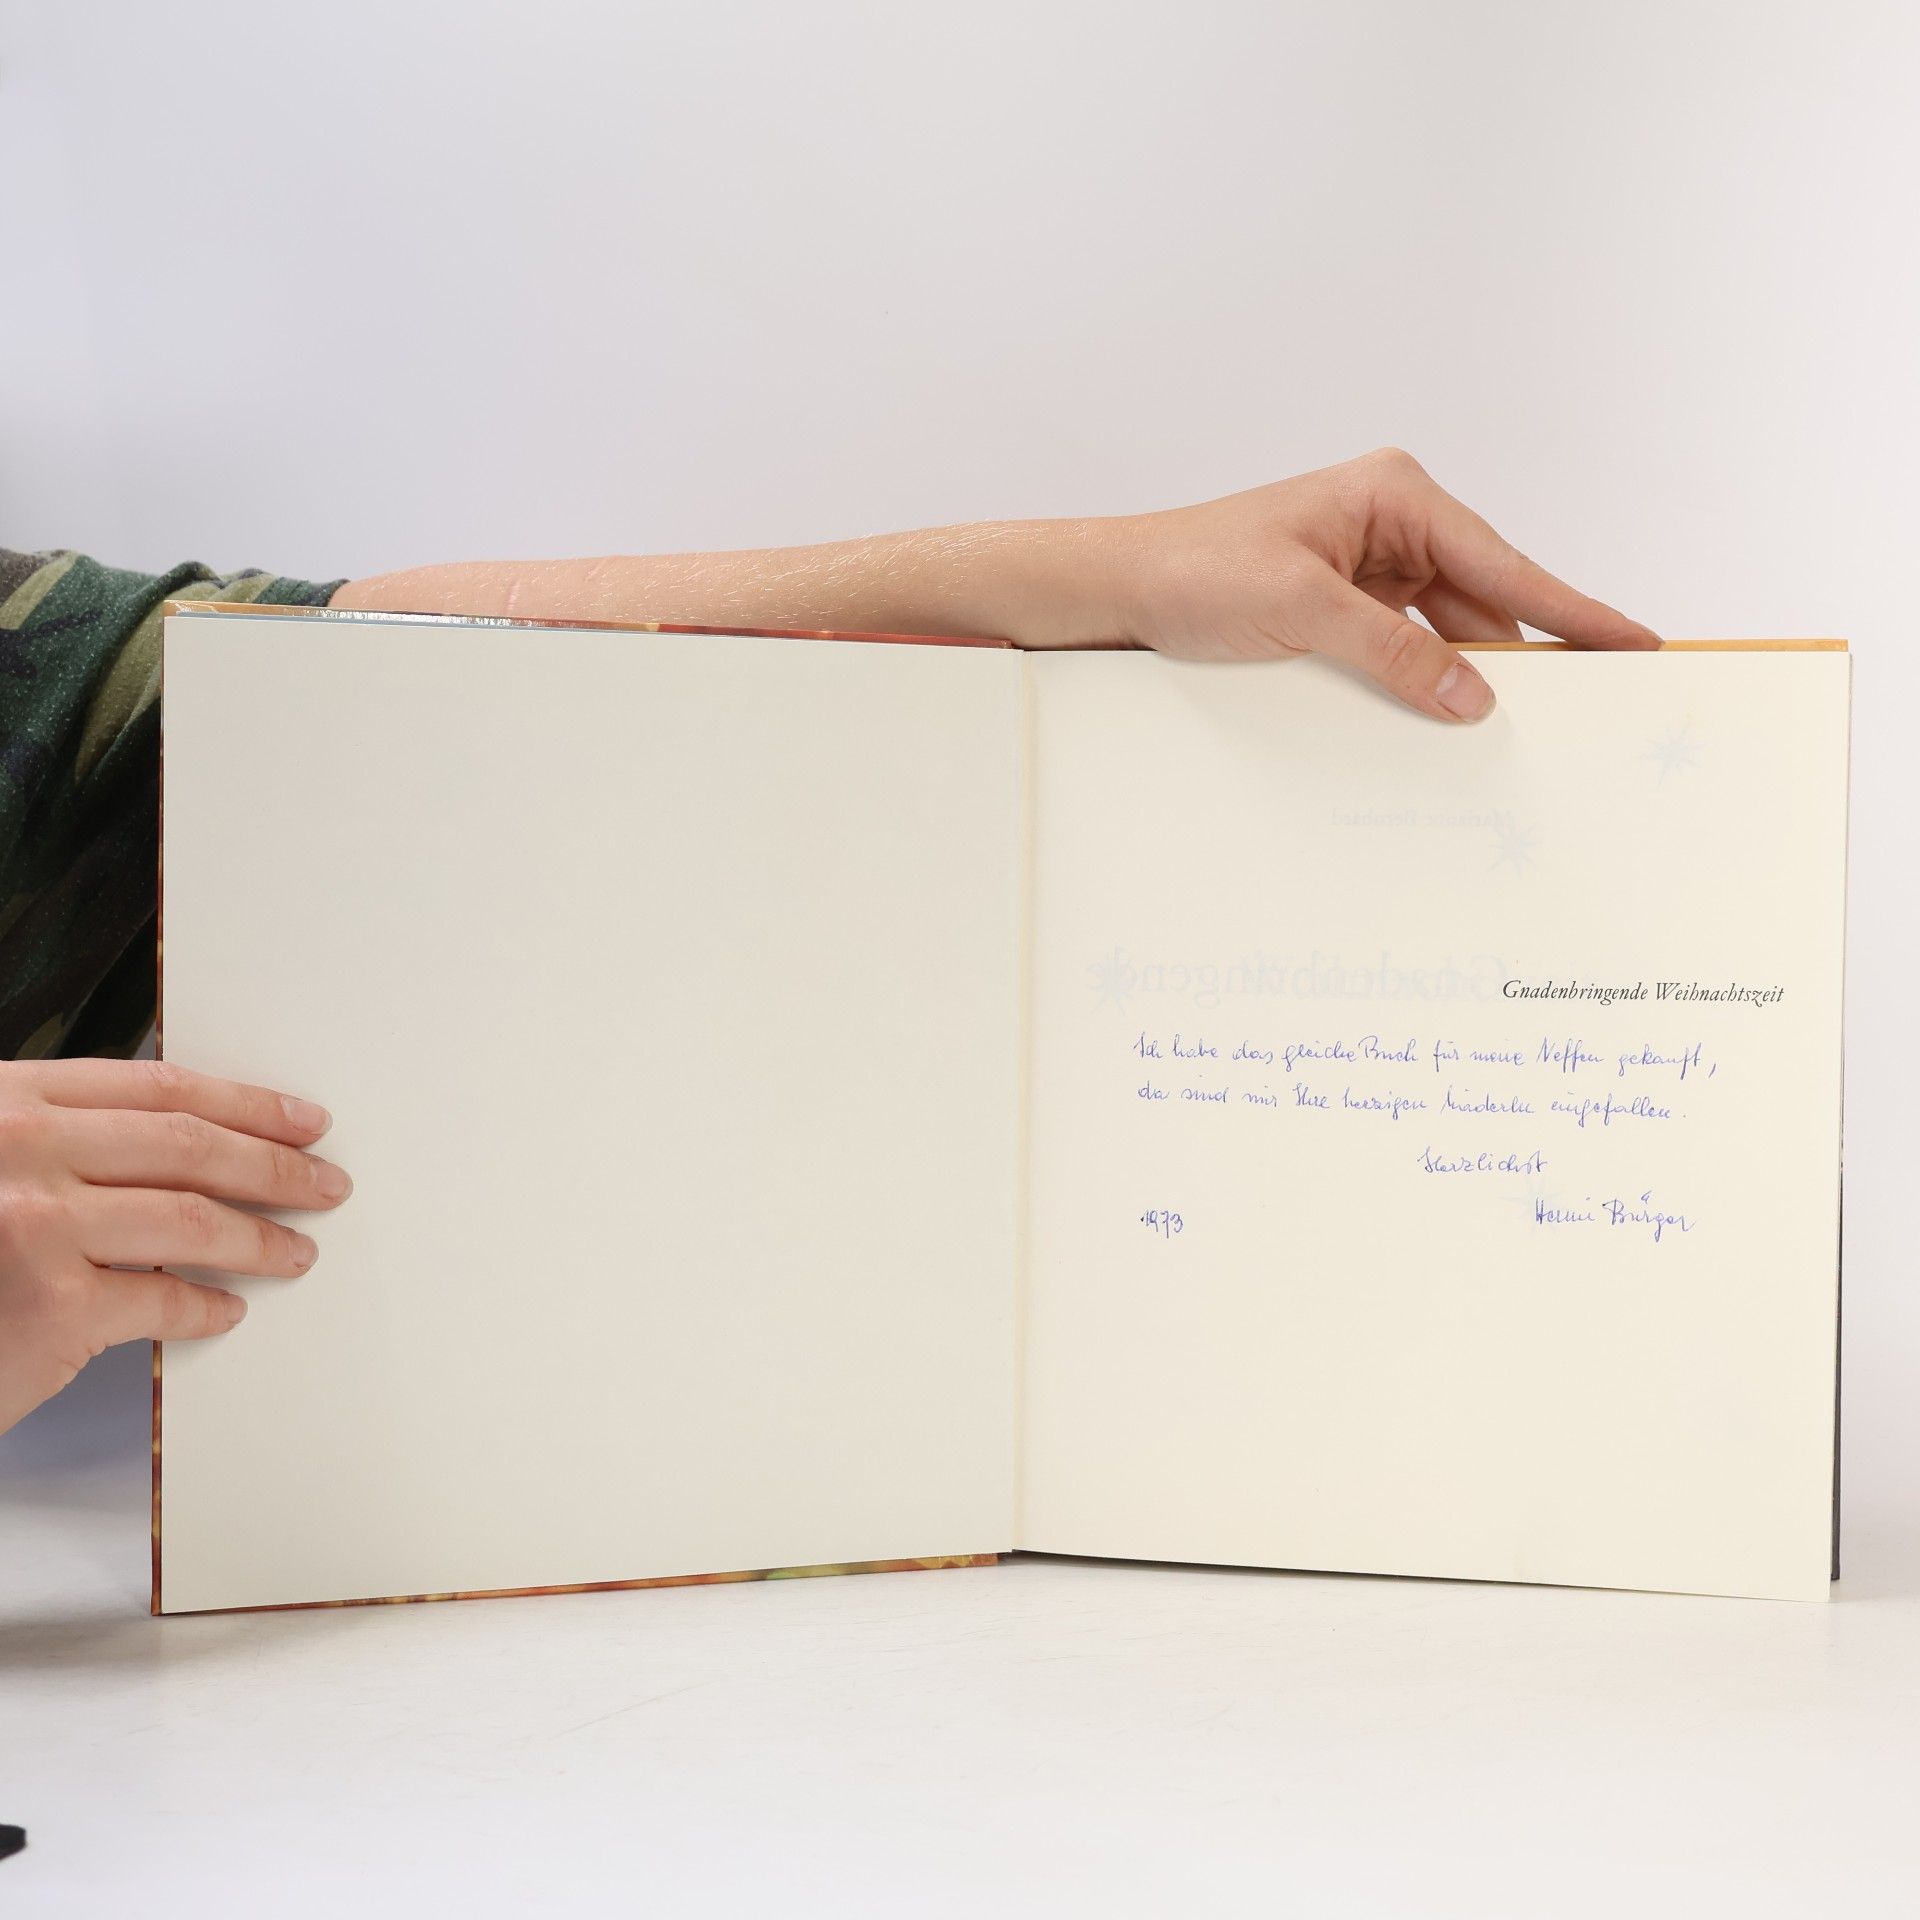 Gnadenbringende Weihnachtszeit
Ich habe das gleiche Buch für meine Neffen gekauft,
da sind mir Ihre herzigen Kinderln eingefallen.
Herzlichst
1973 Hermi Bürger